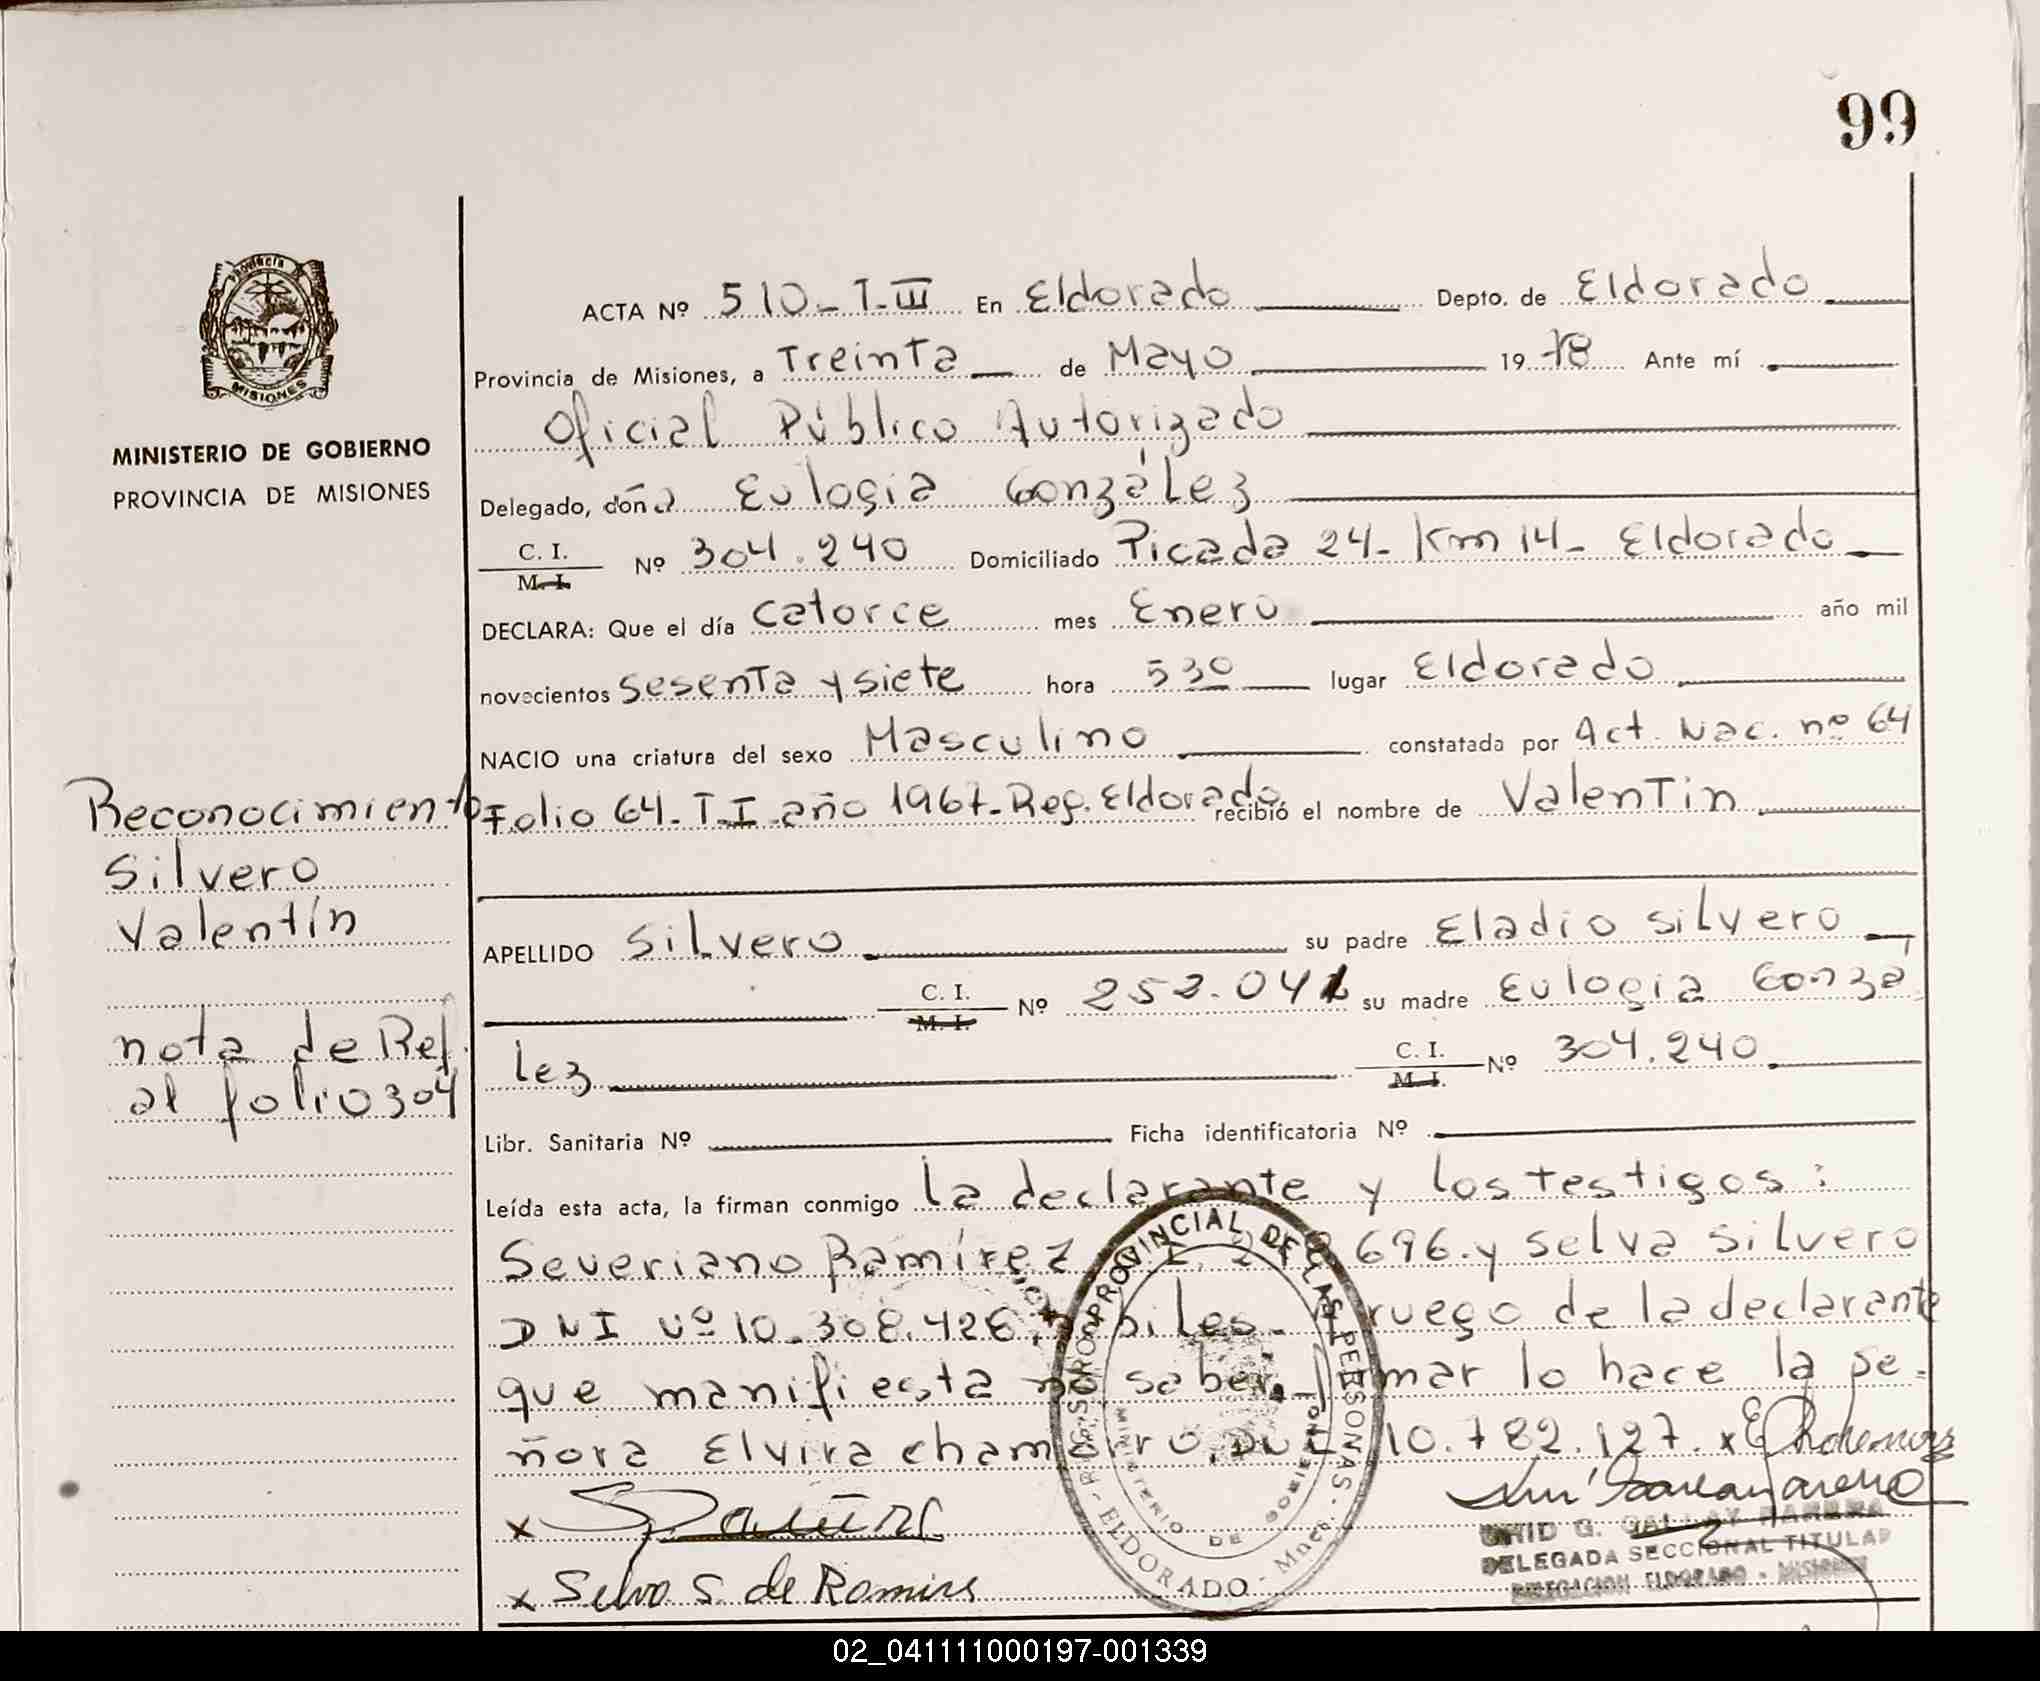 99
Provincia
MISIONES
MINISTERIO DE GOBIERNO
PROVINCIA DE MISIONES
ACTA Nº 510-T-III En Eldorado Depto. de Eldorado
Provincia de Misiones, a Treinta de Mayo 1978 Ante mí
Oficial Público Autorizado
Delegado, doña Eulogia González
C. I.
M. I. Nº 304.240 Domiciliado Picada 24- Km 14- Eldorado
DECLARA: Que el día Catorce mes Enero año mil
novecientos sesenta y siete hora 530 lugar Eldorado
NACIO una criatura del sexo Masculino constatada por Act. Nac. nº 64
Folio 64- T-I- año 1967- Reg. Eldorado recibió el nombre de Valentín
Reconocimiento
Silvero
Valentín
nota de Ref.
al folio 304
APELLIDO Silvero su padre Eladio Silvero
C. I.
M. I. Nº 252.041 su madre Eulogia Gonzá
lez C. I.
M. I. Nº 304.240
Libr. Sanitaria Nº Ficha identificatoria Nº
Leída esta acta, la firman conmigo la declarante y los testigos:
Severiano Ramírez 696. y Selva Silvero
DNI Nº 10.308.426, ruego de la declarante
que manifiesta no saber firmar lo hace la se-
ñora Elvira Chamorro DNI 10.782.127. x
x
x Selva S. de Ramirez
REGISTRO PROVINCIAL DE LAS PERSONAS - ELDORADO - Mnes.
MINISTERIO DE GOBIERNO
DELEGADA SECCIONAL TITULAR
DELEGACION ELDORADO - MISIONES
02_041111000197-001339